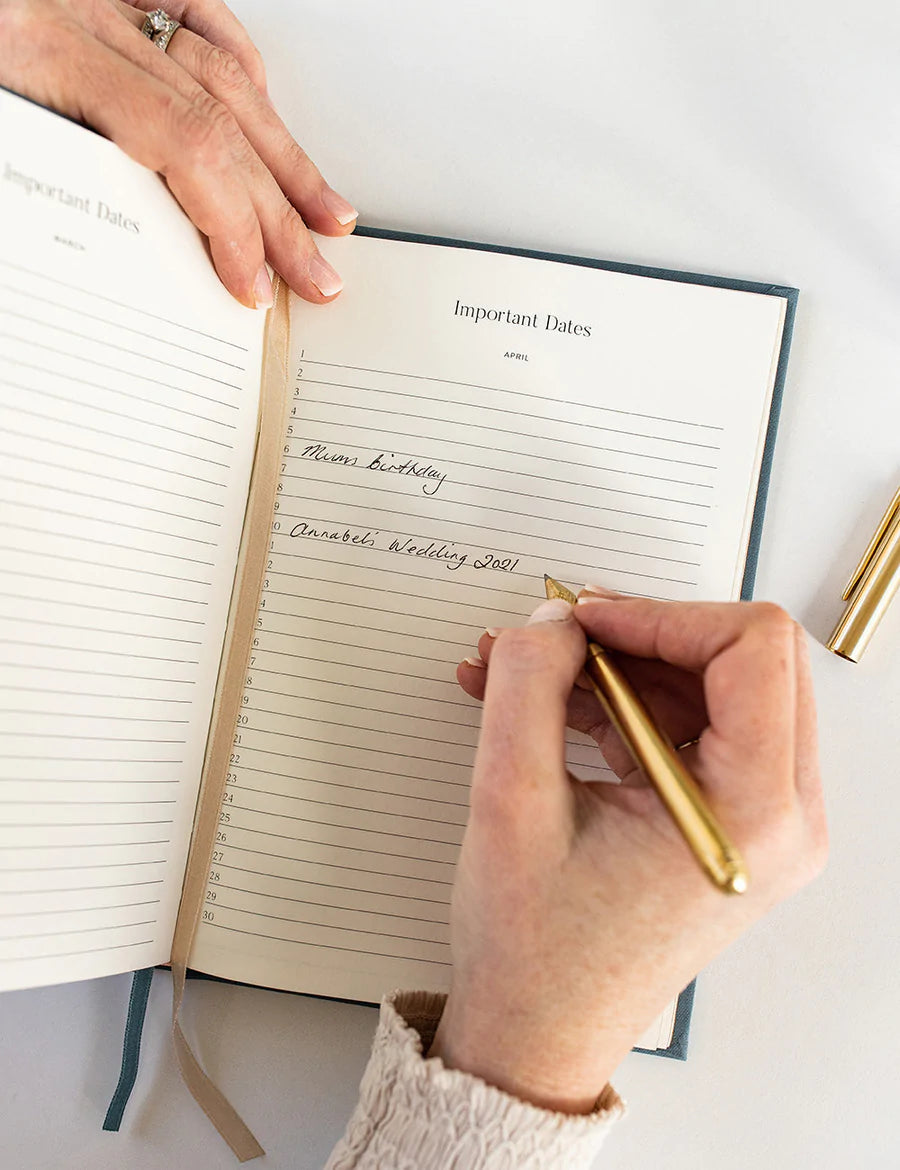 Important Dates
MARCH
Important Dates
APRIL
1
2
3
4
5
6 Mums birthday
7
8
9
10 Annabel's Wedding 2021
1
2
3
4
5
6
7
8
19
20
21
22
23
24
25
26
27
28
29
30